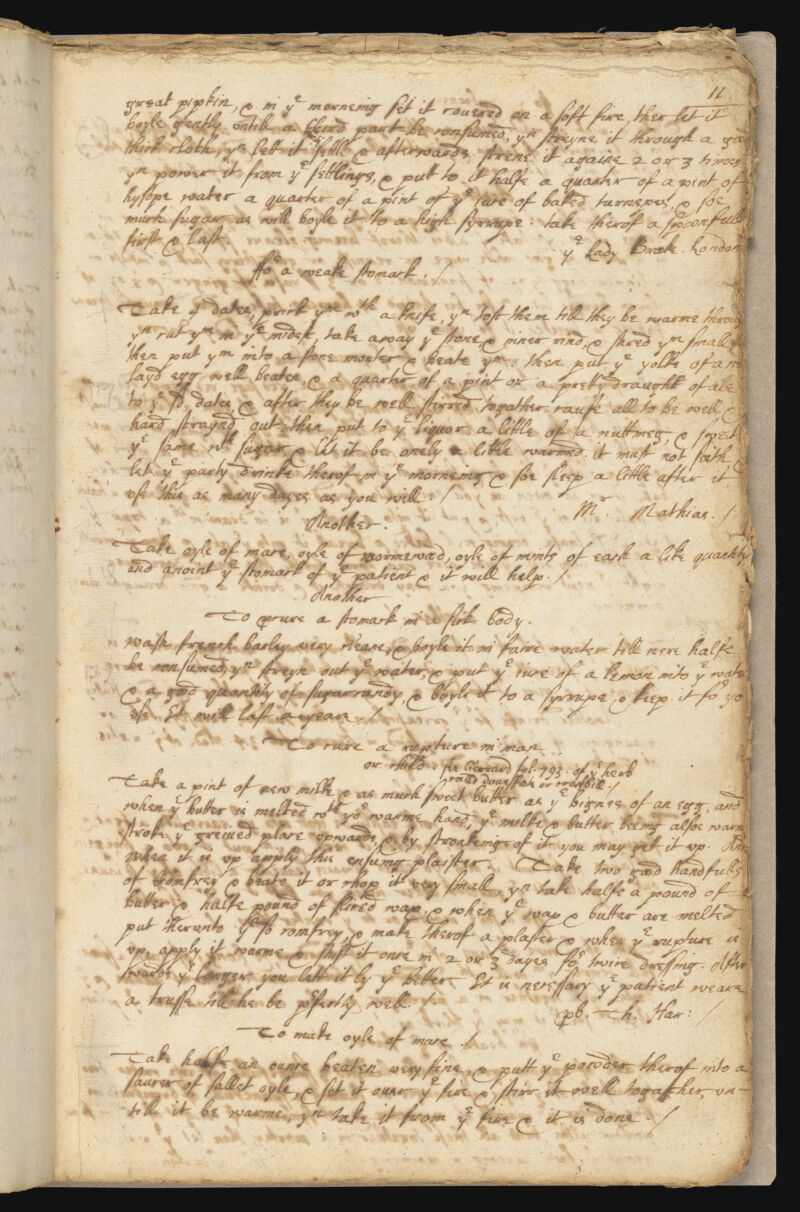 11
great pipkin, & in ye morneing set it covered on a soft fire, ther let it
boyle gently untill a third part be consumed, yn streyne it through a
thick cloth, yn lett it settle & afterwards strene it againe 2 or 3 times
yn power it from ye settlings, & putt to it halfe a quarter of a pint of
hysope water a quarter of a pint of ye iuce of baked turnepes, & soe
much sugar as will boyle it to a high syrrupe. take therof a spoonfull
first & last.
ye Lady London
ffor a weake stomack. /
Take 4 dates, prick ym wth a knife, yn tost them till they be warme throu
yn cut ym in ye midest, take away ye stone & iner rind, & shred ym small
then put ym into a stone morter & beate ym: then put ye yolke of a n
layd egg well beaten, & a quarter of a pint or a prety draught of ale
to ye sd dates, & after they be well stirred together cause all to be well &
hard straynd out then put to ye liquor a little of a nuttmeg, & sweet
ye same wth sugar, & let it be onely a little warmed, it must not seeth
let ye party drinke therof in ye morneing & soe sleep a little after it
use this as many dayes as you will. /
Mr. Mathias. /
Another.
Take oyle of mace, oyle of wormewood, oyle of mints of each a like quantity
and anoint ye stomack of ye patient & it will help. /
Another
To procure a stomack in a sick body.
wash french barley very cleane, & boyle it in faire water till nere halfe
be consumed, yn streyn out ye water, & put ye iuce of a lemon into ye water
& a good quantity of sugarcandy, & boyle it to a syrrupe & keep it for yo
use. It will last a yeare /
To cure a rupture in man
or child. se Gerrard fol. 793. of ye herb
calld dovesfoote or cranbill. /
Take a pint of new milke & as much sweet butter as ye bignes of an egg, and
when ye butter is melted wth yor warme hand, ye milke & butter being alsoe warme
stroke ye greived place upwards, & by stroakeing of it you may get it up. And
when it is up apply this ensuing plaister. Take two good handfulls
of comfrey & beate it or chop it very small, yn take halfe a pound of
butter & halfe pound of sliced wax, & when ye wax & butter are melted
put therunto ye sd comfrey & make therof a plaster & when ye rupture is
up, apply it warme & shift it once in 2 or 3 dayes for twice dressing. After
wards ye longer you let it ly ye better. It is necessary ye patient weare
a trusse till he be perfectly well. /
pb. Th. Har: /
To make oyle of mace. /
Take halfe an ounce beaten very fine, & putt ye powder therof into a
saucer of sallet oyle, & set it over ye fire & stirr it well together, un-
till it be warme, yn take it from ye fire & it is done. /